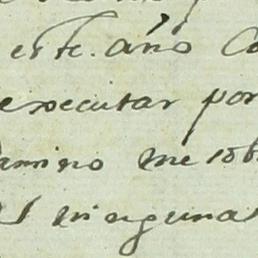 este. año Co
executar por
amino me ob
ningunas